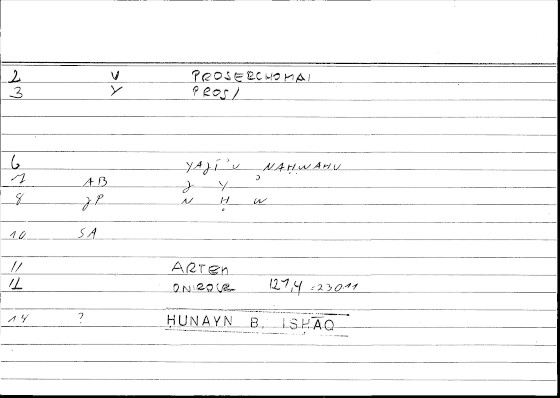 2 V PROSERCHOMAI
3 Y PROS/
6 YAǦĪ'U NAḤWAHU
7 AB ǧ Y ʾ
8 ǧP N Ḥ W
10 SA
11 ARTEM
12 ONIROCR 127,4 = 23011
14 ? ḤUNAYN B. ISḤĀQ